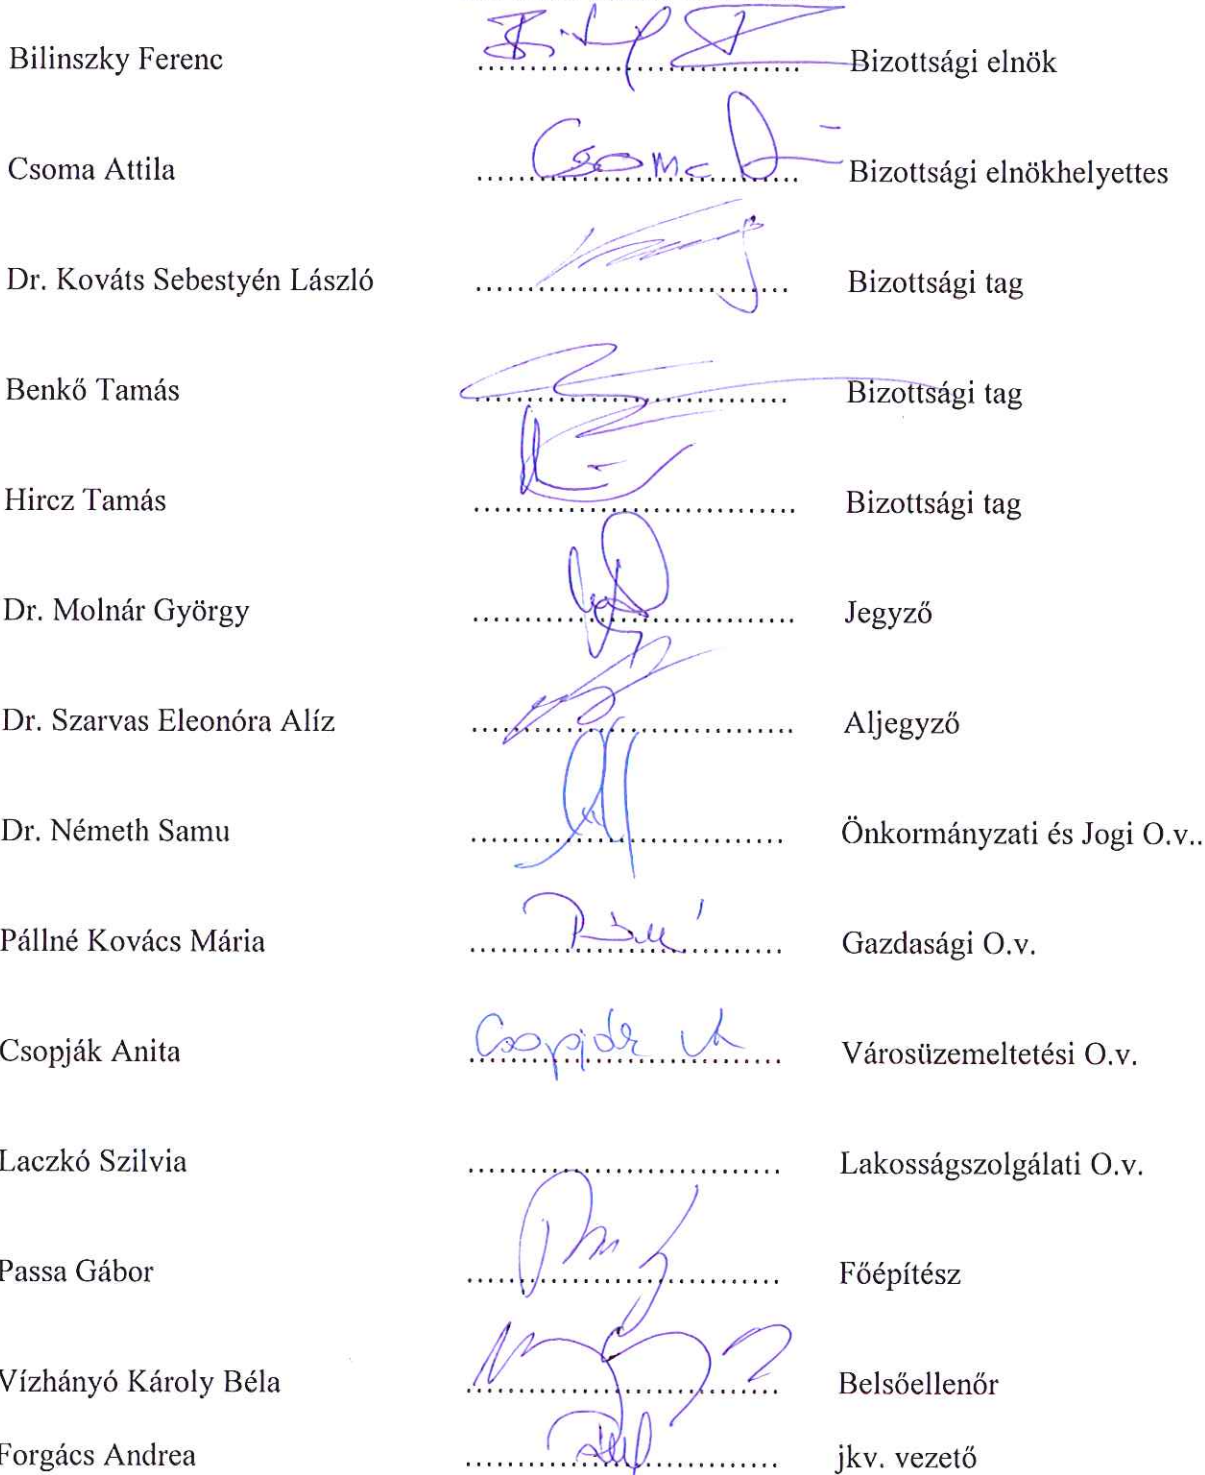 Bilinszky Ferenc .................................. Bizottsági elnök
Csoma Attila Csoma A .................................. Bizottsági elnökhelyettes
Dr. Kováts Sebestyén László .................................. Bizottsági tag
Benkő Tamás .................................. Bizottsági tag
Hircz Tamás .................................. Bizottsági tag
Dr. Molnár György .................................. Jegyző
Dr. Szarvas Eleonóra Alíz .................................. Aljegyző
Dr. Németh Samu .................................. Önkormányzati és Jogi O.v..
Pállné Kovács Mária .................................. Gazdasági O.v.
Csopják Anita Csopják A .................................. Városüzemeltetési O.v.
Laczkó Szilvia .................................. Lakosságszolgálati O.v.
Passa Gábor .................................. Főépítész
Vízhányó Károly Béla .................................. Belsőellenőr
Forgács Andrea .................................. jkv. vezető